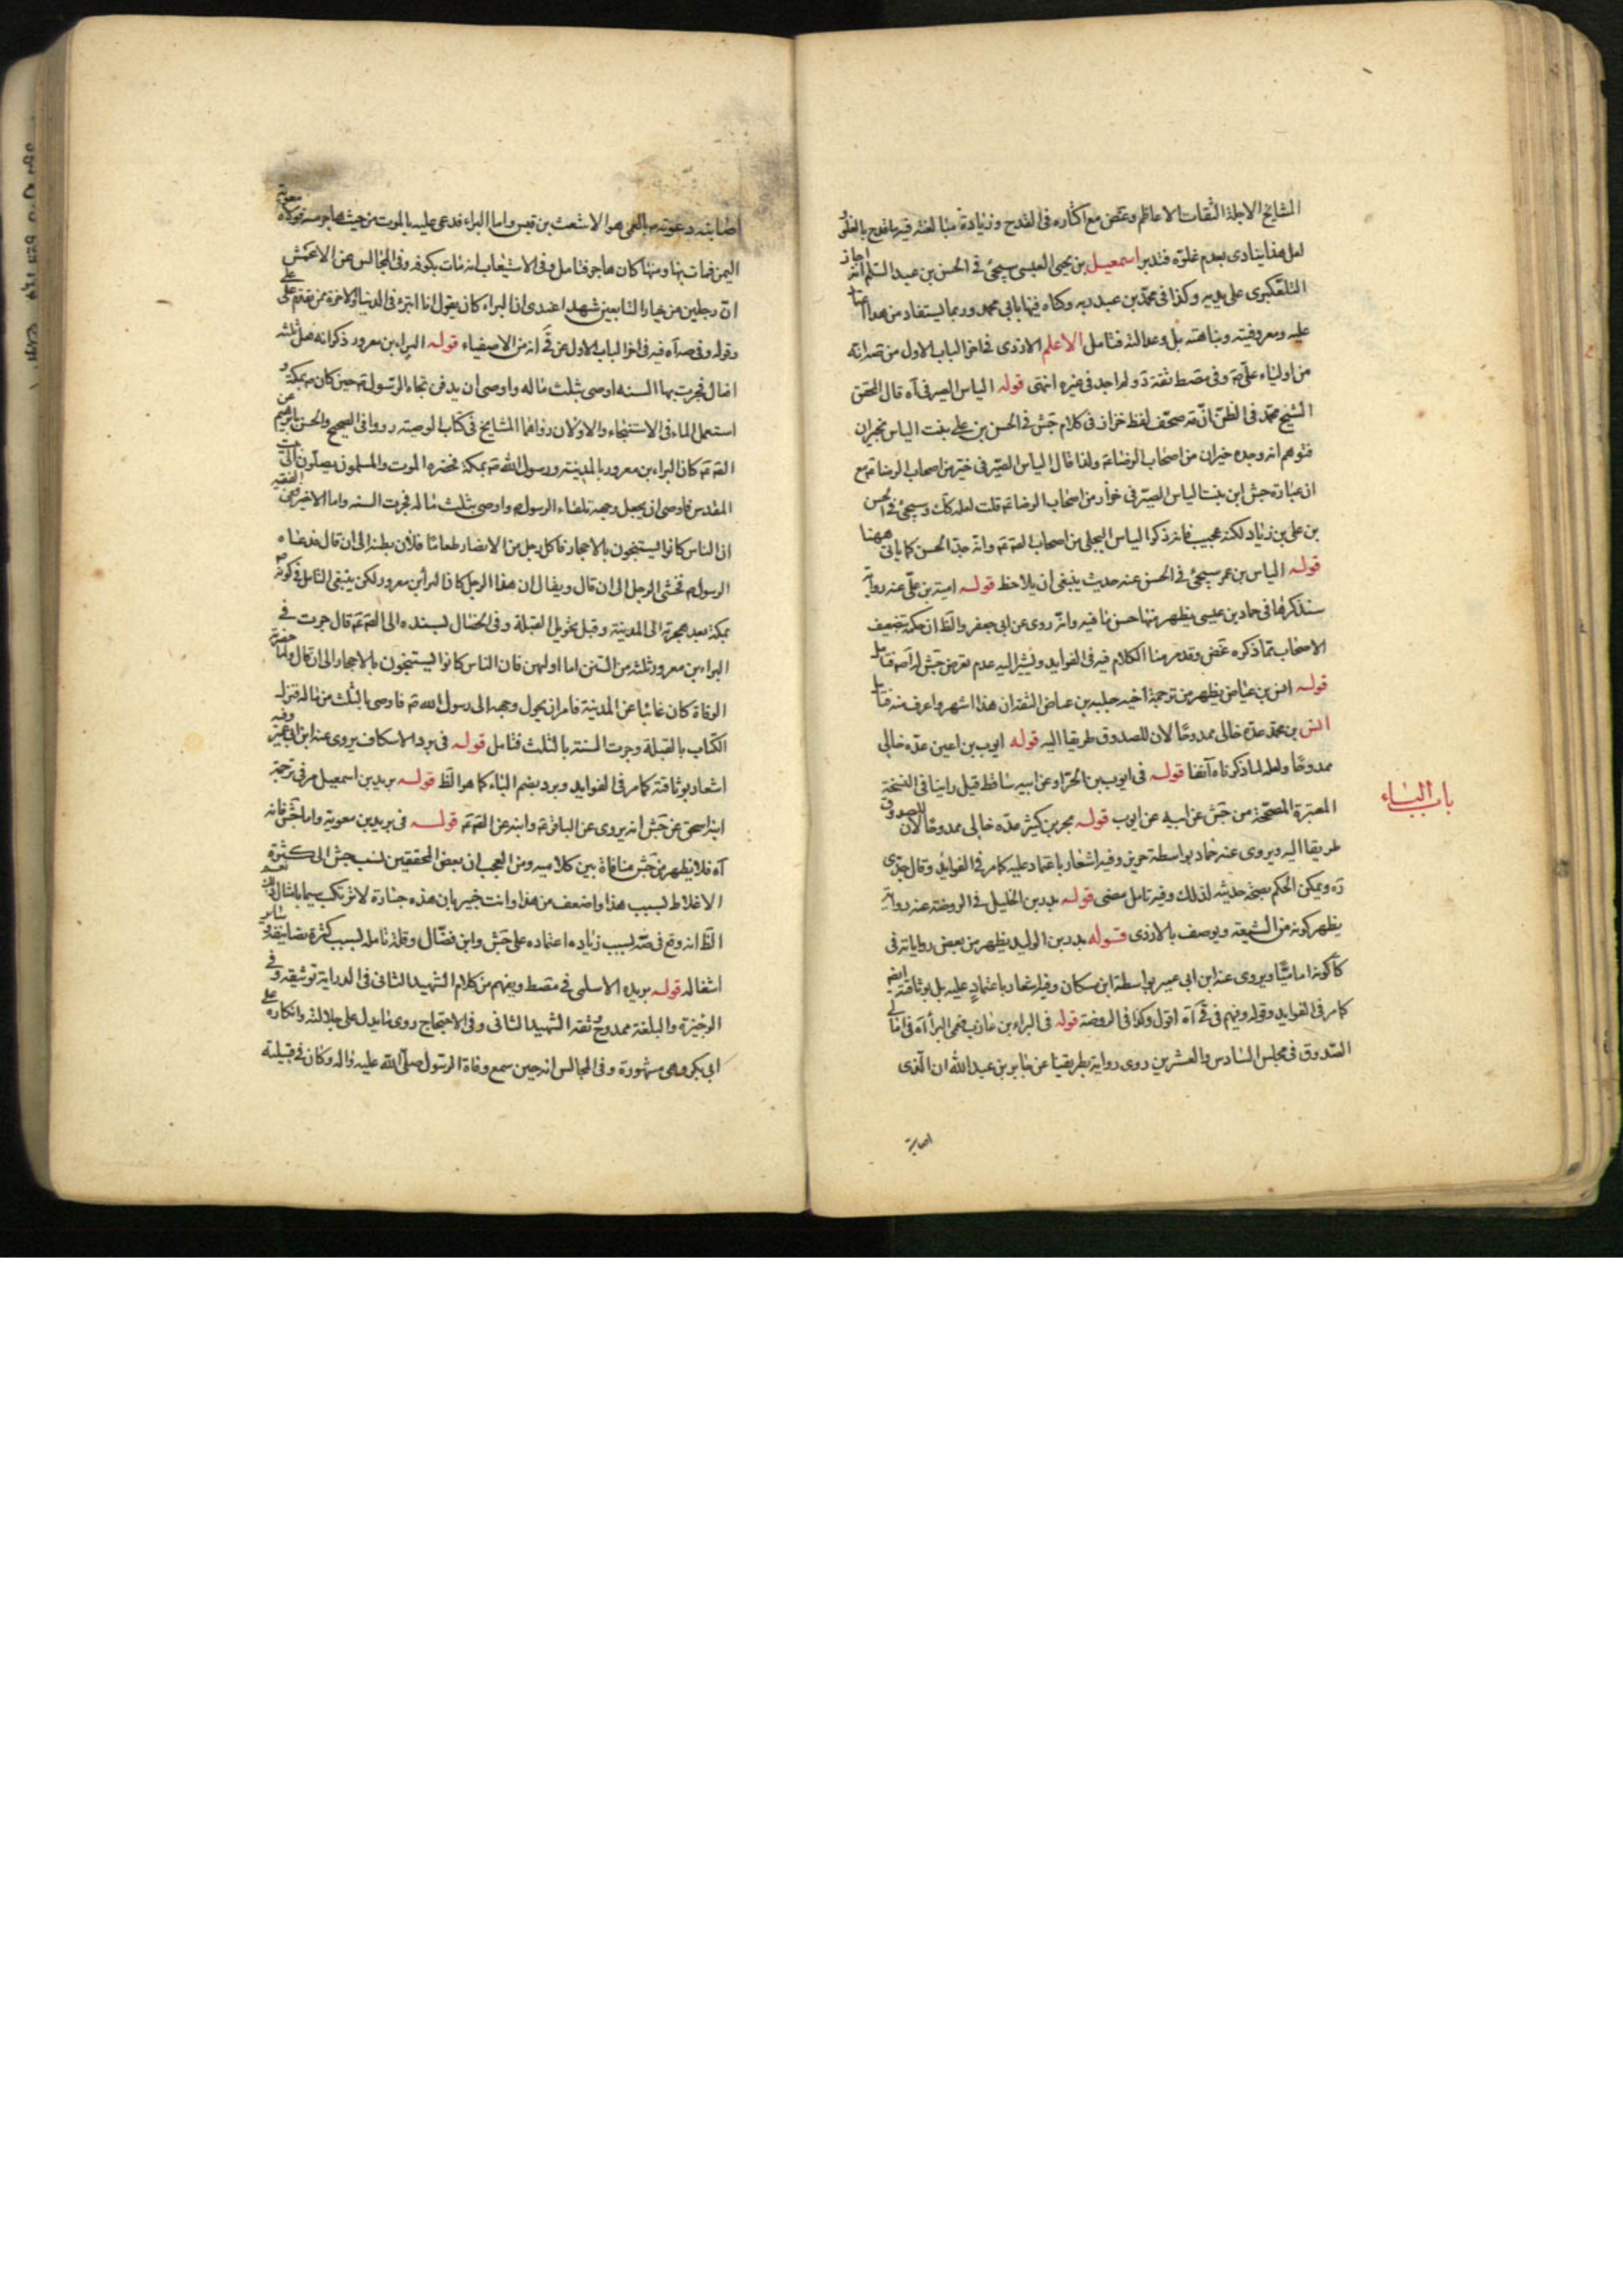 المشايخ الاجلة الثقات الاعاظم وغض مع اكثاره فى القدح وزيادة مبالغته فيه ما قدح بالغلو
لعل هذا ينادى بعدم غلوه فتدبر اسمعيل بن يحيى العبسى سيجئ فى الحسن بن عبد السلم انه اجاز
التلعكبرى على يديه وكذا فى محمد بن عبد ربه وكناه فيها بابى محمد وربما يستفاد من هذا
عليه ومعروفيته ونباهته بل وعدالته فتامل الاعلم الازدى فى اخر الباب الاول من صه انه
من اولياء على ع وفى مصط ثقة ولم اجد فى غيره انتهى قوله الياس الصيرفى آه قال المحقق
الشيخ محمد فى الظن انه صحف لفظ خزاز فى كلام جش فى الحسن بن على بنت الياس بخيران
فتوهم انه وجده خيران من اصحاب الرضا ع ولذا قال الياس الصيرفى خير من اصحاب الرضا ع مع
ان عبارة جش ابن بنت الياس الصيرفى خزاز من اصحاب الرضا ع قلت لعله كك وسيجئ فى الحسن
بن على بن زياد لكنه عجيب فانه ذكر الياس البجلى من اصحاب الصه ع وانه جد الحسن كما ياتى ههنا
قوله الياس بن عمر سيجئ فى الحسن عنه حديث ينبغى ان يلاحظ قوله امية بن على عنه رواية
سنذكرها فى حماد بن عيسى يظهر منها حسن ما فيه وانه روى عن ابى جعفر والظ ان حكمه بتضعيف
الاصحاب مما ذكره غض وقد مر منا الكلام فيه فى الفوايد ويشير اليه عدم تعرض جش له آصه فتامل
قوله انس بن عياض يظهر من ترجمة اخيه جلبه بن عياض الثقة ان هذا اشهر واعرف منه فتا مل
انس بن محمد عده خالى ممدوحا لان للصدوق طريقا اليه قوله ايوب بن اعين عده خالى
ممدوحا ولعله لما ذكرناه آنفا قوله فى ايوب بن الحر او عن ابيه ساقط قيل راينا فى النسخة
باب الباء
المعتبرة المصححة من جش عن ابيه عن ايوب قوله بحر بن كثير عده خالى ممدوحا لان للصدوق
طريقا اليه ويروى عنه حماد بواسطة حريز وفيه اشعار باعتماد عليه كما مر فى الفوايد وقال جدى
ره ويمكن الحكم بصحة حديثه لذلك وفيه تامل مضى قوله بدر بن الخليل فى الروضة عنه رواية
يظهر كونه من الشيعة ويوصف بالازدى قوله بدر بن الوليد يظهر من بعض رواياته فى
كا كونه اماميا ويروى عنه ابن ابى عمير بواسطة ابن مسكان وفيه اشعار باعتماد عليه بل بوثاقته ايضا
كما مر فى الفوايد وقوله ويفهم فى قى آه اقول وكذا فى الروضة قوله فى البراء بن عازب فعمى البراء آه فى امالى
الصدوق فى مجلس السادس والعشرين روى رواية بطريقنا عن جابر بن عبد الله ان الذى
اصابته
اصابته دعوته ع بالعمى هو الاشعث بن قيس واما البراء فدعى عليه بالموت من حيث هاجر منه فولاه معوية
اليمن فمات بها ومنها كان هاجر فتامل وفى الاستيعاب انه مات بكوفه وفى المجالس عن الاعمش
ان رجلين من خيار التابعين شهدا عندى ان البراء كان يقول انا اتبرء فى الدنيا والاخرة ممن تقدم على على
وقوله وفى صه آه فيه فى اخر الباب الاول عن قى انه من الاصفياء قوله البراء بن معرور ذكر انه فعل ثلثه
افعال فجرت بها السنه اوصى بثلث ماله واوصى ان يدفن تجاه الرسول ص حين كان ص بمكة و
استعمل الماء فى الاستنجاء والاولان رواهما المشايخ فى كتاب الوصيته رووا فى الصحيح والحسن بابرهيم عن
الصه ع كان البراء بن معرور بالمدينة ورسول الله ص بمكة فحضره الموت والمسلمون يصلون الى بيت
المقدس فاوصى ان يجعل وجهه تلقاء الرسول ص واوصى بثلث ماله فجرت السنه واما الاخير فعن الفقيه
ان الناس كانوا يستنجون بالاحجار فاكل رجل من الانصار طعاما فلان بطنه الى ان قال فدعاه
الرسول ص فخشى الرجل الى ان قال ويقال ان هذا الرجل كان البراء بن معرور لكن ينبغى التامل فى كونه ص
بمكة بعد هجرته الى المدينة وقبل تحويل القبلة وفى الخصال بسنده الى الصه ع قال جرت فى
البراء بن معرور ثلثه من السنن اما اوليهن فان الناس كانوا يستنجون بالاحجار الى ان قال ولما حضرته
الوفاة كان غائبا عن المدينة فامر ان يحول وجهه الى رسول الله ص فاوصى بالثلث من ماله فنزل
الكتاب بالقبلة وجرت السنة بالثلث فتامل قوله فى برد الاسكاف يروى عنه ابن ابى عمير وفيه
اشعار بوثاقته كما مر فى الفوايد وبرد بضم الباء كما هو الظ قوله بريد بن اسمعيل مر فى ترجمة
ابنه اسحق عن جش انه يروى عن الباقر ع وابنه عن الصه ع قوله فى بريد بن معوية واما جش فانه
آه فلا يظهر من جش منافاة بين كلاميه ومن العجب ان بعض المحققين نسب جش الى كثرة
الاغلاط بسبب هذا واضعف من هذا وانت خبير بان هذه جسارة لا ترتكب سيما بامثال ذلك نعم
الظ انه وقع فى صه بسبب زياده اعتماده على جش وابن فضال وقلة تامله بسبب كثرة تصانيفه و ساير
اشغاله قوله بريده الاسلمى فى مصط ويفهم من كلام الشهيد الثانى فى الدراية توثيقه وفى
الوجيزة والبلغة ممدوح ثقه الشهيد الثانى وفى الاحتجاج روى ما يدل على جلالته وانكاره على
ابى بكر وهى مشهورة وفى المجالس انه حين سمع وفاة الرسول صلى الله عليه واله وكان فى قبيلته